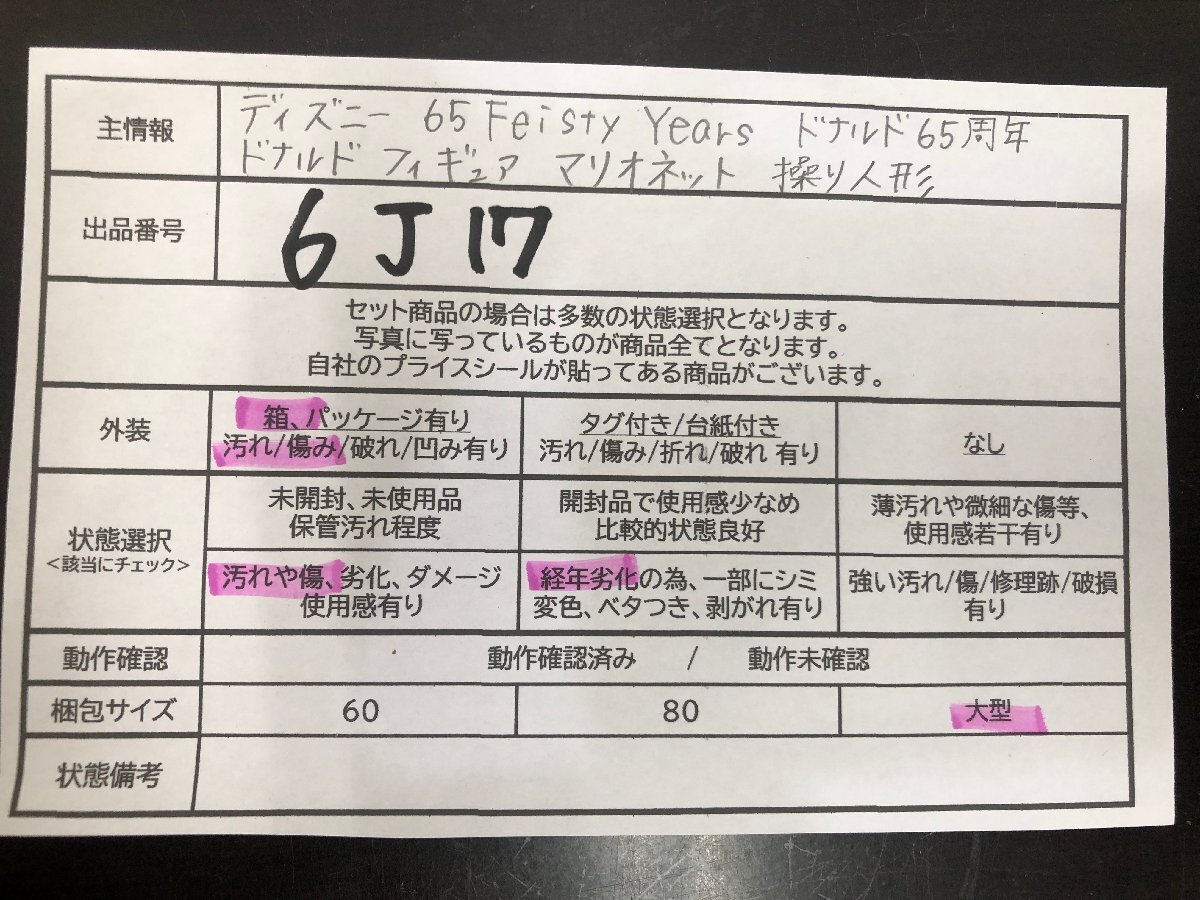 主情報
ディズニー 65 Feisty Years ドナルド65周年
ドナルド フィギュア マリオネット 操り人形
出品番号
6J17
セット商品の場合は多数の状態選択となります。
写真に写っているものが商品全てとなります。
自社のプライスシールが貼ってある商品がございます。
外装
箱、パッケージ有り
汚れ/傷み/破れ/凹み有り
タグ付き/台紙付き
汚れ/傷み/折れ/破れ 有り
なし
状態選択
<該当にチェック>
未開封、未使用品
保管汚れ程度
開封品で使用感少なめ
比較的状態良好
薄汚れや微細な傷等、
使用感若干有り
汚れや傷、劣化、ダメージ
使用感有り
経年劣化の為、一部にシミ
変色、ベタつき、剥がれ有り
強い汚れ/傷/修理跡/破損
有り
動作確認
動作確認済み / 動作未確認
梱包サイズ
60
80
大型
状態備考